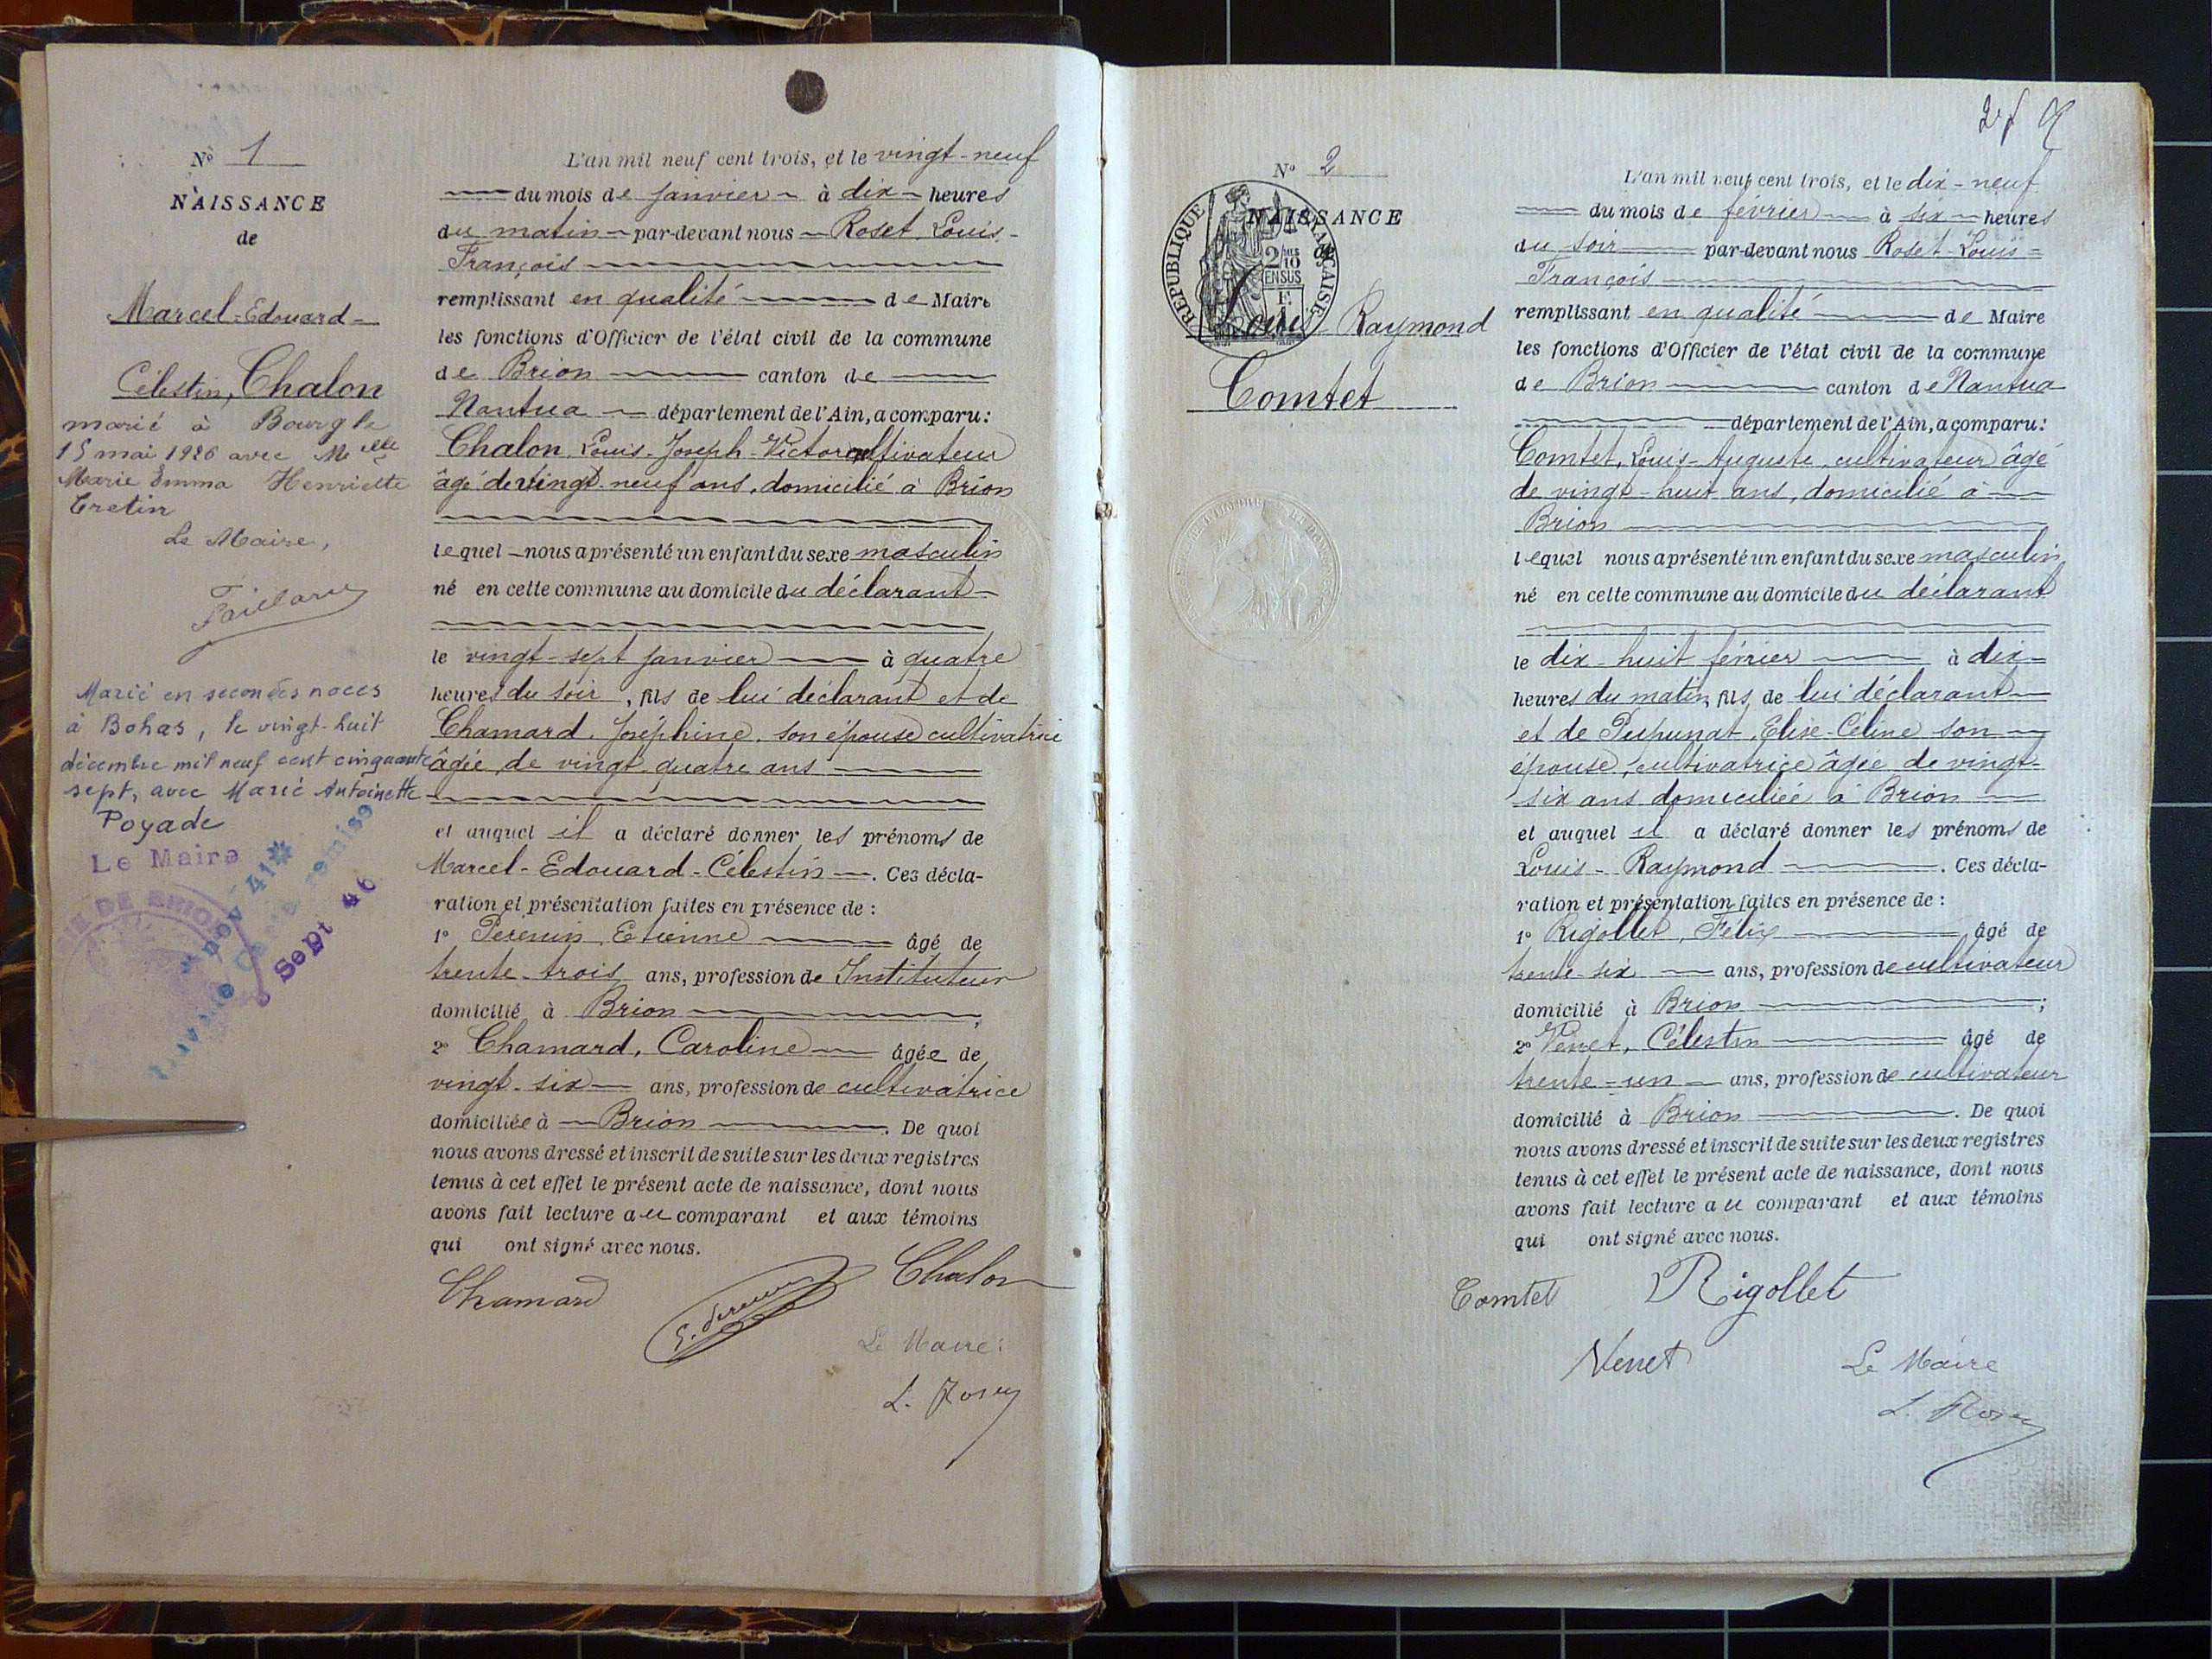 Nº 1
NAISSANCE
de
Marcel-Edouard-
Célestin, Chalon
marié à Bourg le
15 mai 1926 avec Melle
Marie Emma Henriette
Cretin
Le Maire,
Marié en secondes noces
à Bohas, le vingt-huit
décembre mil neuf cent cinquante
sept, avec Marie Antoinette
Poyade
Le Maire
DE BRION
nov 41
Sept 46
L'an mil neuf cent trois, et le vingt-neuf
du mois de janvier à dix heures
du matin par-devant nous Roset Louis-
François
remplissant en qualité de Maire
les fonctions d'Officier de l'état civil de la commune
de Brion canton de
Nantua département de l'Ain, a comparu:
Chalon Louis-Joseph-Victor cultivateur
âgé de vingt-neuf ans, domicilié à Brion
lequel nous a présenté un enfant du sexe masculin
né en cette commune au domicile du déclarant
le vingt-sept janvier à quatre
heures du soir, fils de lui déclarant et de
Chamard, Joséphine, son épouse cultivatrice
âgée de vingt-quatre ans
et auquel il a déclaré donner les prénoms de
Marcel-Edouard-Célestin. Ces décla-
ration et présentation faites en présence de :
1º Perenin, Etienne âgé de
trente-trois ans, profession de Instituteur
domicilié à Brion;
2º Chamard, Caroline âgée de
vingt-six ans, profession de cultivatrice
domiciliée à Brion. De quoi
nous avons dressé et inscrit de suite sur les deux registres
tenus à cet effet le présent acte de naissance, dont nous
avons fait lecture au comparant et aux témoins
qui ont signé avec nous.
Chamard
Chalon
Le Maire:
Nº 2
NAISSANCE
de
REPUBLIQUE FRANÇAISE
2/10
EN SUS
Louis Raymond
Comtet
L'an mil neuf cent trois, et le dix-neuf
du mois de février à six heures
du soir par-devant nous Roset Louis-
François
remplissant en qualité de Maire
les fonctions d'Officier de l'état civil de la commune
de Brion canton de Nantua
département de l'Ain, a comparu:
Comtet, Louis-Auguste, cultivateur âgé
de vingt-huit ans, domicilié à
Brion
lequel nous a présenté un enfant du sexe masculin
né en cette commune au domicile du déclarant
le dix-huit février à dix
heures du matin, fils de lui déclarant
et de Pupunat, Elise-Céline son
épouse, cultivatrice âgée de vingt-
six ans domiciliée à Brion
et auquel il a déclaré donner les prénoms de
Louis-Raymond. Ces décla-
ration et présentation faites en présence de :
1º Rigollet, Félix âgé de
trente six ans, profession de cultivateur
domicilié à Brion;
2º Venet, Célestin âgé de
trente-un ans, profession de cultivateur
domicilié à Brion. De quoi
nous avons dressé et inscrit de suite sur les deux registres
tenus à cet effet le présent acte de naissance, dont nous
avons fait lecture au comparant et aux témoins
qui ont signé avec nous.
Comtet Rigollet
Venet Le Maire